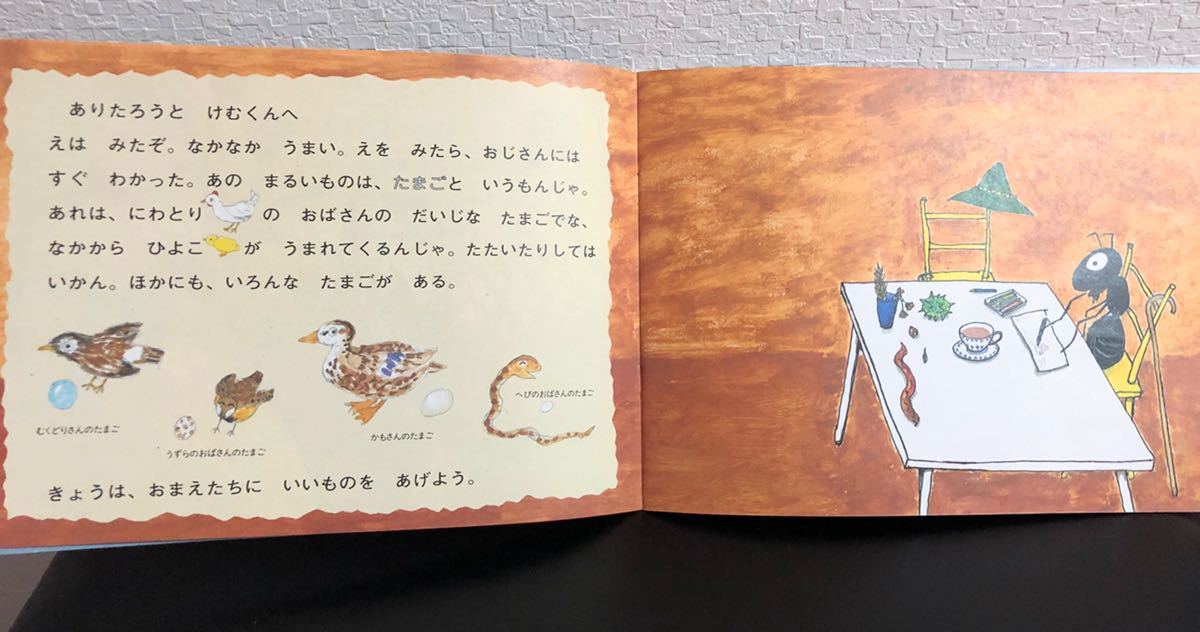 ありたろうと けむくんへ
えは みたぞ。なかなか うまい。えを みたら、おじさんには
すぐ わかった。あの まるいものは、たまごと いうもんじゃ。
あれは、にわとり の おばさんの だいじな たまごでな、
なかから ひよこ が うまれてくるんじゃ。たたいたりしては
いかん。ほかにも、いろんな たまごが ある。
むくどりさんのたまご
うずらのおばさんのたまご
かもさんのたまご
へびのおばさんのたまご
きょうは、おまえたちに いいものを あげよう。